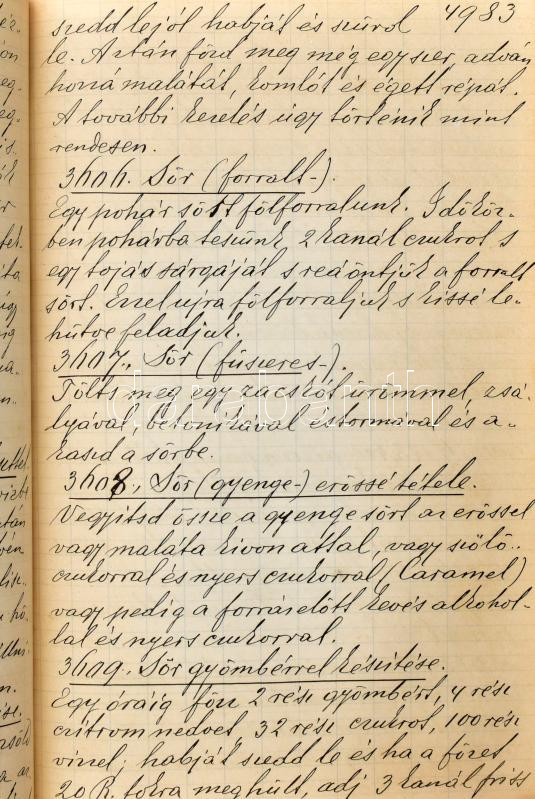 4983
szedd lejól habját és szürd
le. Aztán főzd meg még egyszer, adván
hozzá malátát, komlót és égett répát.
A további kezelés úgy történik mint
rendesen.
3606. Sör (forralt-).
Egy pohár sört fölforralunk. Időköz-
ben pohárba teszünk 2 kanál cukrot s
egy tojás sárgáját s reáöntjük a forralt
sört. Ezzel ujra fölforraljuk s kissé le-
hütve feladjuk.
3607. Sör (füszeres-).
Tölts meg egy zacskót ürömmel, zsá-
lyával, betonikával és tormával és a-
kaszd a sörbe.
3608. Sör (gyenge-) erőssé tétele.
Vegyitsd össze a gyenge sört az erőssel
vagy maláta kivonattal, vagy szőlő-
cukorral és nyers cukorral (Caramel)
vagy pedig a forrás előtt kevés alkohol-
lal és nyers cukorral.
3609. Sör gyömbérrel készitése.
Egy óráig főzz 2 rész gyömbért, 4 rész
citrom nedvet, 32 rész cukrot, 100 rész
vizzel; habját szedd le és ha a főzet
20 R. fokra meghült, adj 3 kanál friss
darabanth